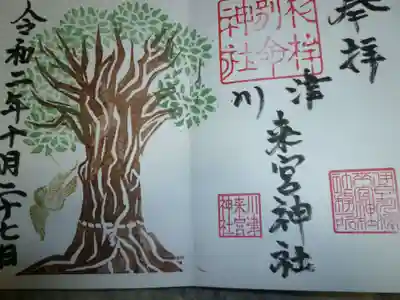 奉拝
川津
来宮神社
杉桙
別命
神社
川津
来宮
神社
令和二年十月二十七日